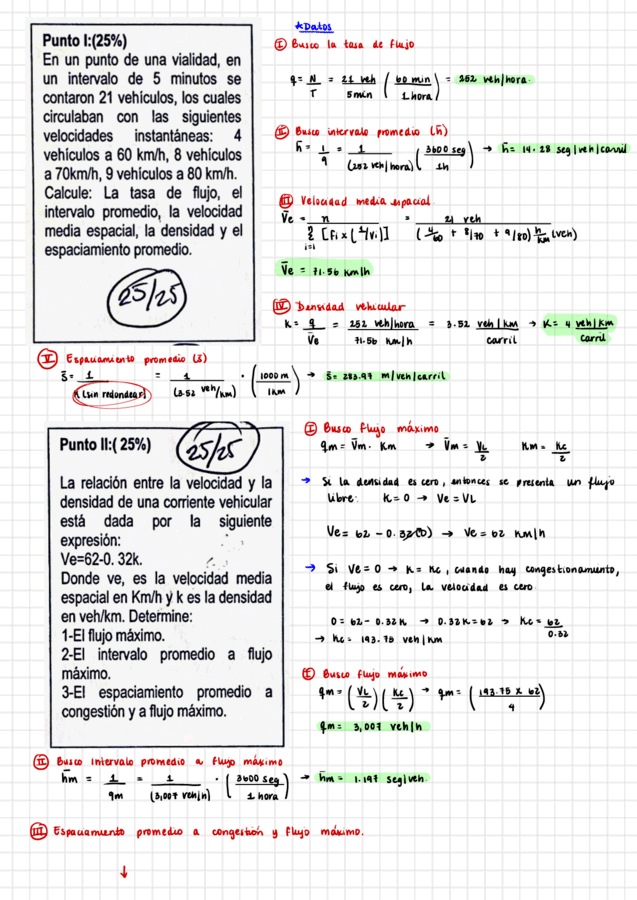 *Datos
Punto I:(25%)
En un punto de una vialidad, en
un intervalo de 5 minutos se
contaron 21 vehículos, los cuales
circulaban con las siguientes
velocidades instantáneas: 4
vehículos a 60 km/h, 8 vehículos
a 70km/h, 9 vehículos a 80 km/h.
Calcule: La tasa de flujo, el
intervalo promedio, la velocidad
media espacial, la densidad y el
espaciamiento promedio.
25/25
I Busco la tasa de flujo
q = N/T = 21 veh/5min (60 min/1 hora) = 252 veh/hora.
II Busco intervalo promedio (h̄)
h̄ = 1/q = 1/(252 veh/hora) (3600 seg/1h) → h̄= 14.28 seg/veh/carril
III Velocidad media espacial.
V̄e = n/Σ i=1 [Fi x (1/Vi)] = 21 veh/(4/60 + 8/70 + 9/80) h/km (veh)
V̄e = 71.56 km/h
IV Densidad vehicular
K = q/V̄e = 252 veh/hora/71.56 km/h = 3.52 veh/km/carril → K= 4 veh/km/carril
V Espaciamiento promedio (s̄)
s̄ = 1/K (sin redondear) = 1/(3.52 veh/km) · (1000 m/1km) → s̄= 283.97 m/veh/carril
Punto II:( 25%)
25/25
La relación entre la velocidad y la
densidad de una corriente vehicular
está dada por la siguiente
expresión:
Ve=62-0. 32k.
Donde ve, es la velocidad media
espacial en Km/h y k es la densidad
en veh/km. Determine:
1-El flujo máximo.
2-El intervalo promedio a flujo
máximo.
3-El espaciamiento promedio a
congestión y a flujo máximo.
I Busco flujo máximo
qm = V̄m · Km → V̄m = VL/2 Km = Kc/2
→ Si la densidad es cero, entonces se presenta un flujo
libre: K=0 → Ve = VL
Ve= 62 - 0.32(0) → Ve = 62 km/h
→ Si Ve = 0 → K = Kc, cuando hay congestionamiento,
el flujo es cero, la velocidad es cero.
0 = 62 - 0.32K → 0.32K = 62 → Kc = 62/0.32
→ Kc = 193.75 veh/km
I Busco flujo máximo
qm = (VL/2) (Kc/2) → qm = (193.75 x 62/4)
qm = 3,007 veh/h
II Busco intervalo promedio a flujo máximo
h̄m = 1/qm = 1/(3,007 veh/h) · (3600 seg/1 hora) → h̄m = 1.197 seg/veh.
III Espaciamiento promedio a congestión y flujo máximo.
↓